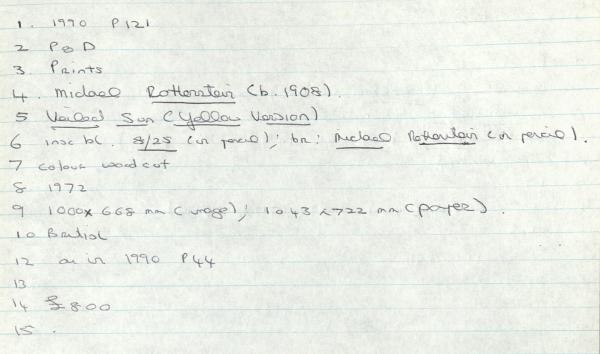 1. 1990 P121
2 P&D
3. Prints
4. Michael Rothenstein (b. 1908).
5 Veiled Sun (Yellow Version)
6 insc bl. 8/25 (in pencil); br: Michael Rothenstein (in pencil).
7 colour woodcut
8 1972
9 1000 x 668 mm (image); 1043 x 722 mm (paper).
10 British
12 as in 1990 P44
13
14 £800
15 .